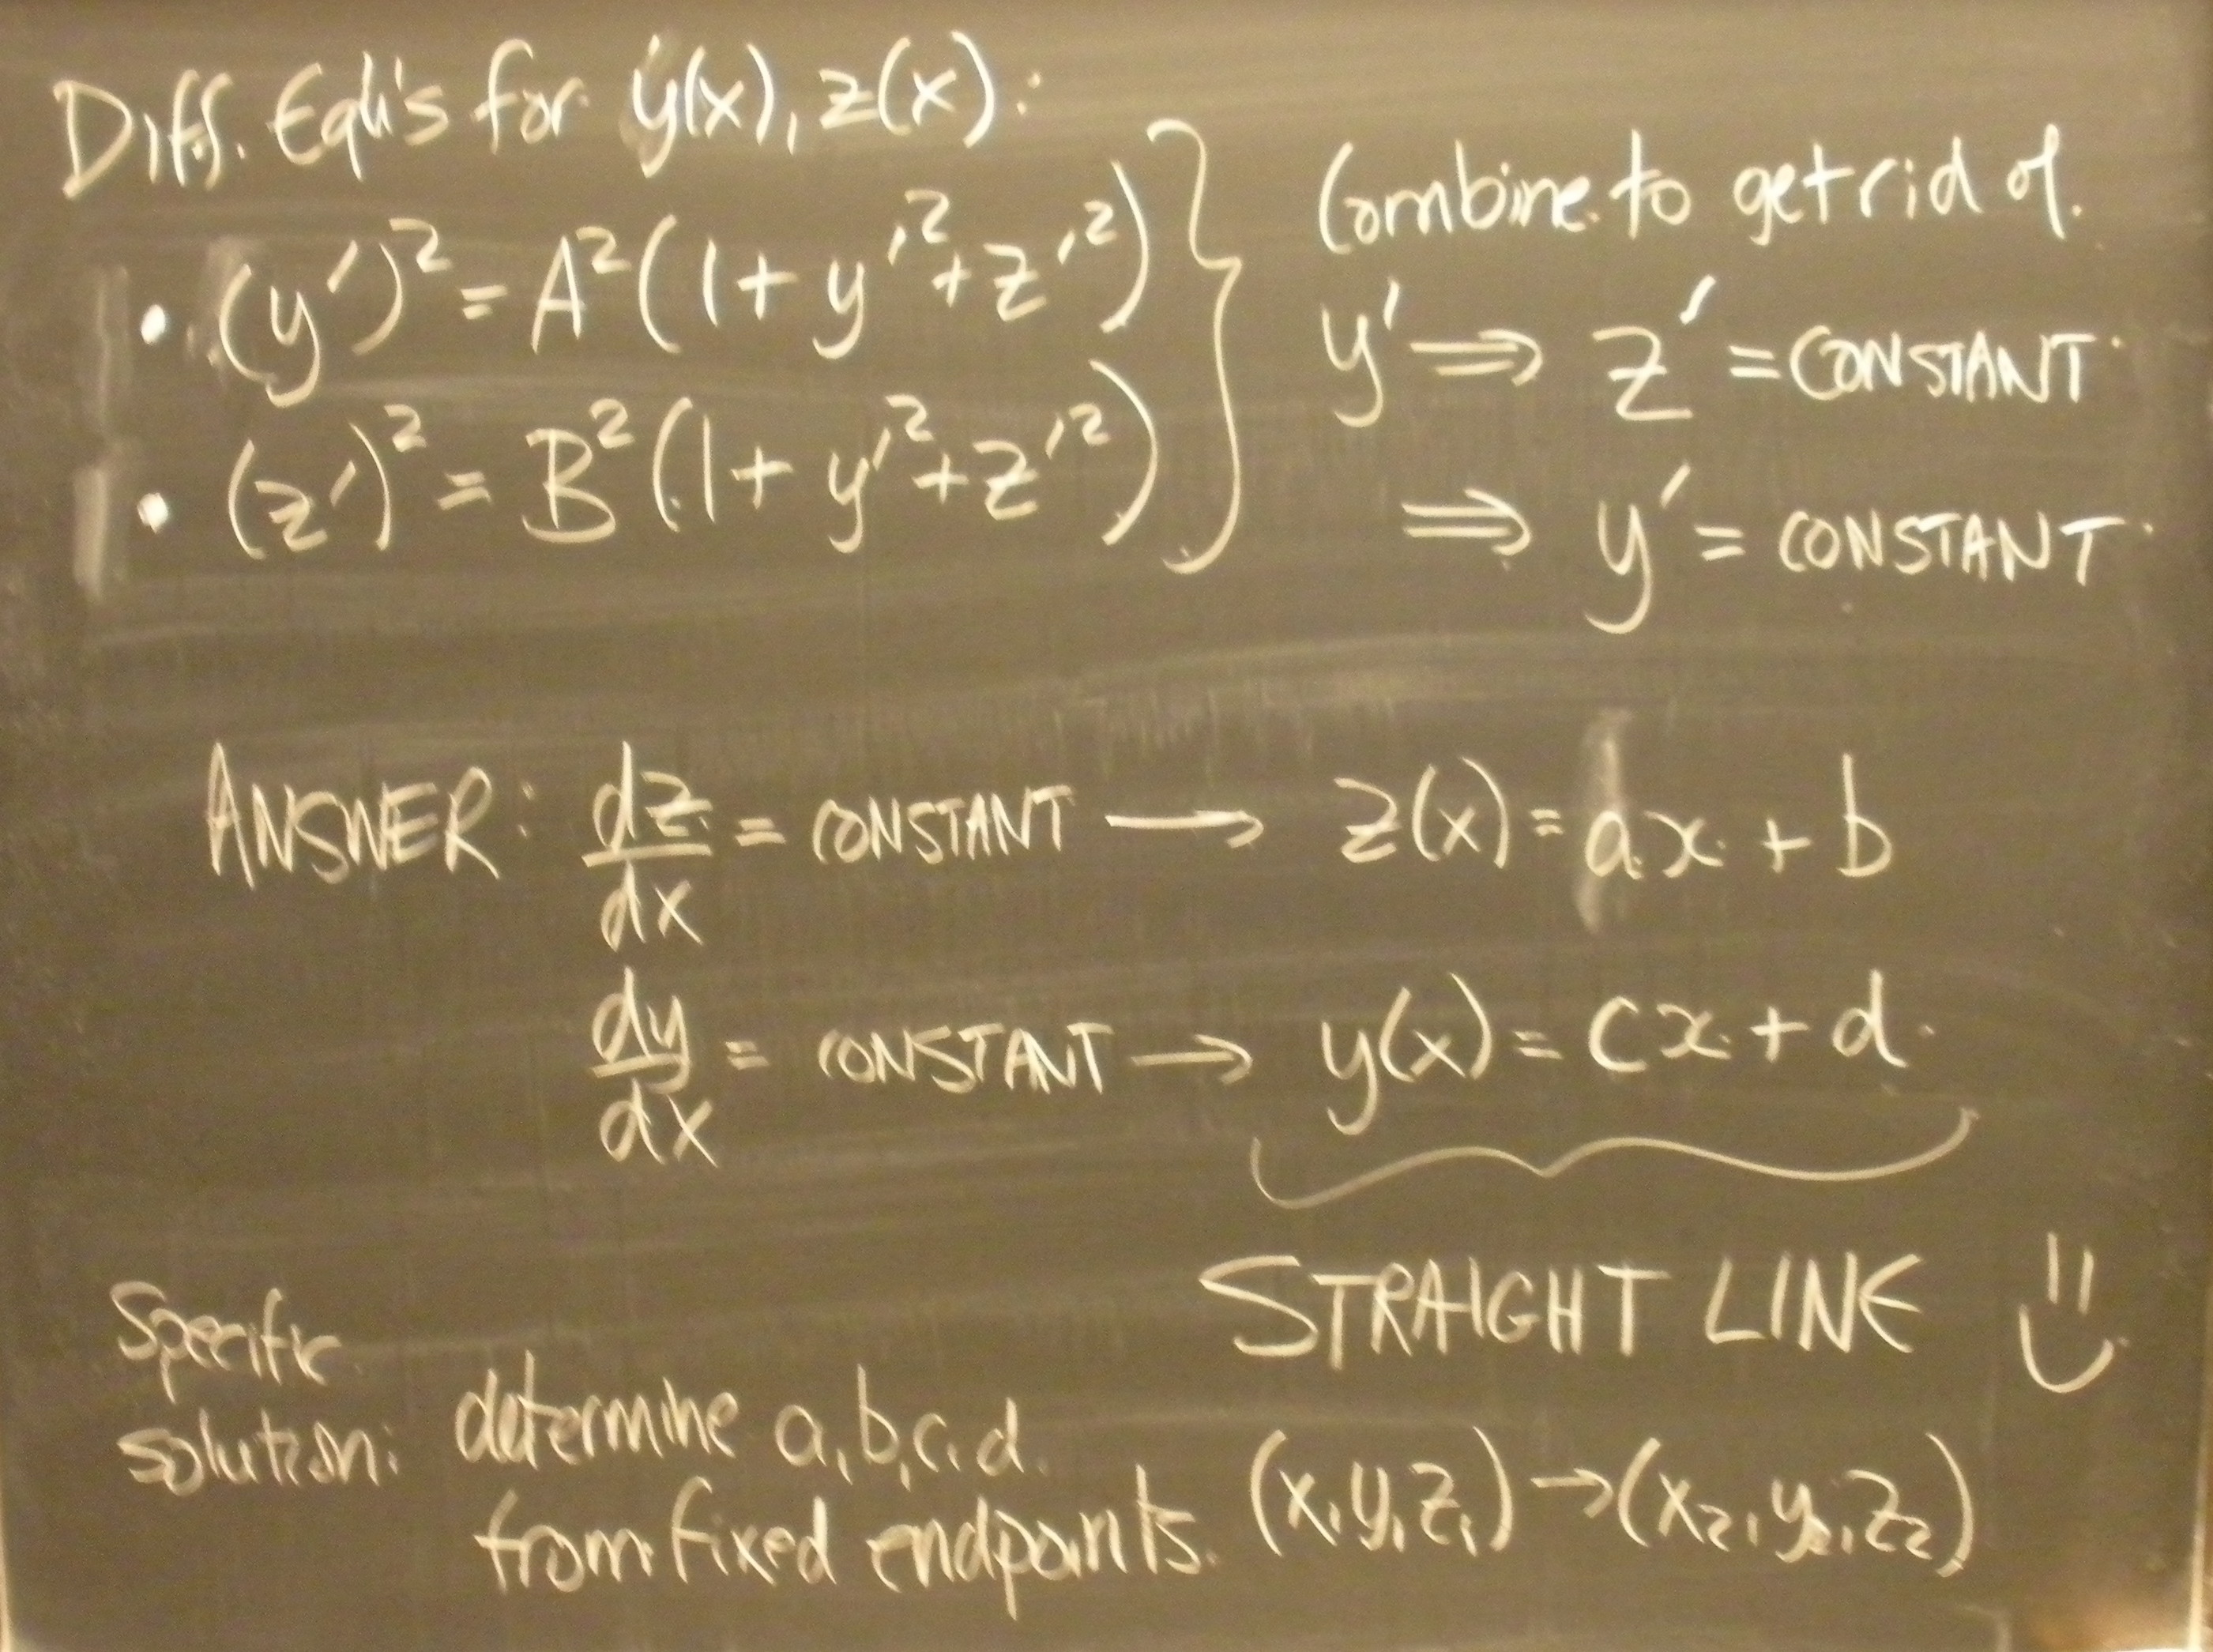 Diff. Eqn's for y(x), z(x):
• (y')² = A²(1 + y'² + z'²)
• (z')² = B²(1 + y'² + z'²)
Combine to get rid of
y' ⟹ z' = CONSTANT
⟹ y' = CONSTANT
ANSWER: dz/dx = CONSTANT → z(x) = ax + b
dy/dx = CONSTANT → y(x) = cx + d
STRAIGHT LINE
Specific
solution: determine a, b, c, d
from fixed endpoints. (x₁y₁z₁) → (x₂, y₂, z₂)